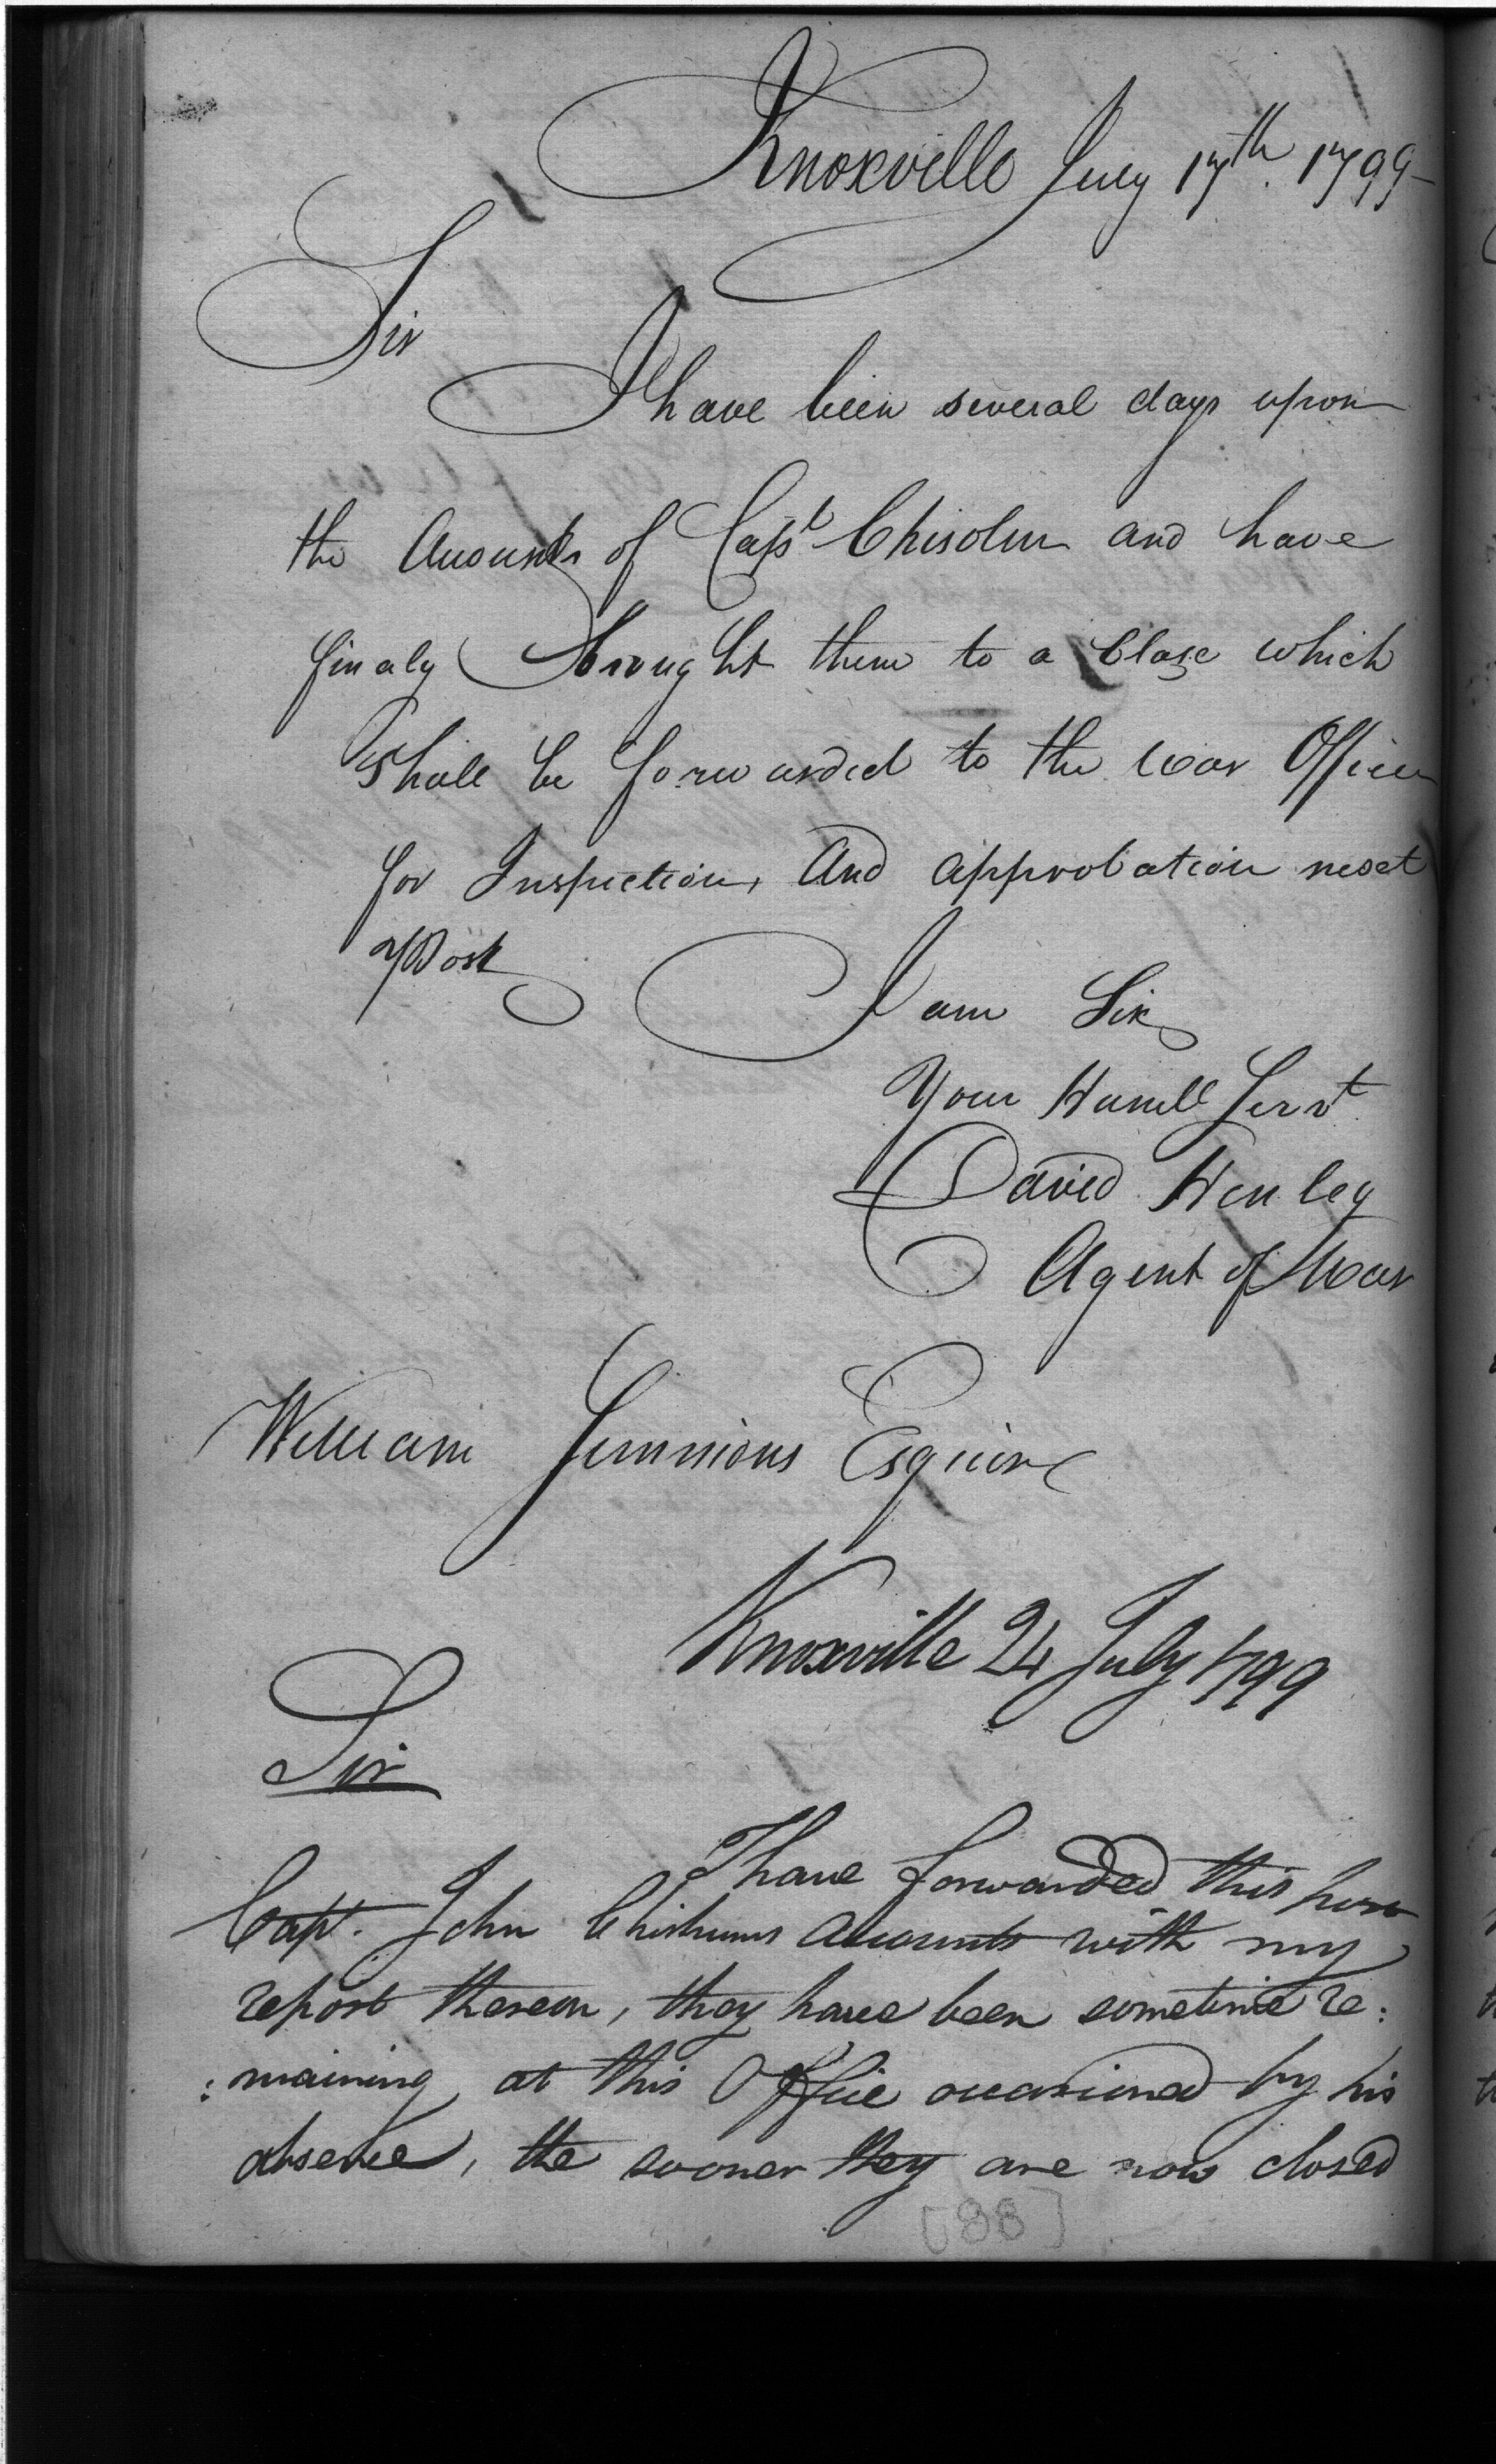 Knoxville July 17th. 1799-
Sir
I have been several days upon
the Accounts of Capt Chisolm and have
finaly Brought them to a Close which
Shall be forwarded to the War Office
for Inspection, And approbation next
Post
I am Sir
Your Humbl Servt
David Henley
Agent of War
William Simmions Esquire
Knoxville 24 July 1799
Sir
I have forwarded this hour
Capt. John Chishums Accounts with my
report thereon, they have been sometime re:
:maining at this Office occasioned by his
absence, the sooner they are now closed
[88]